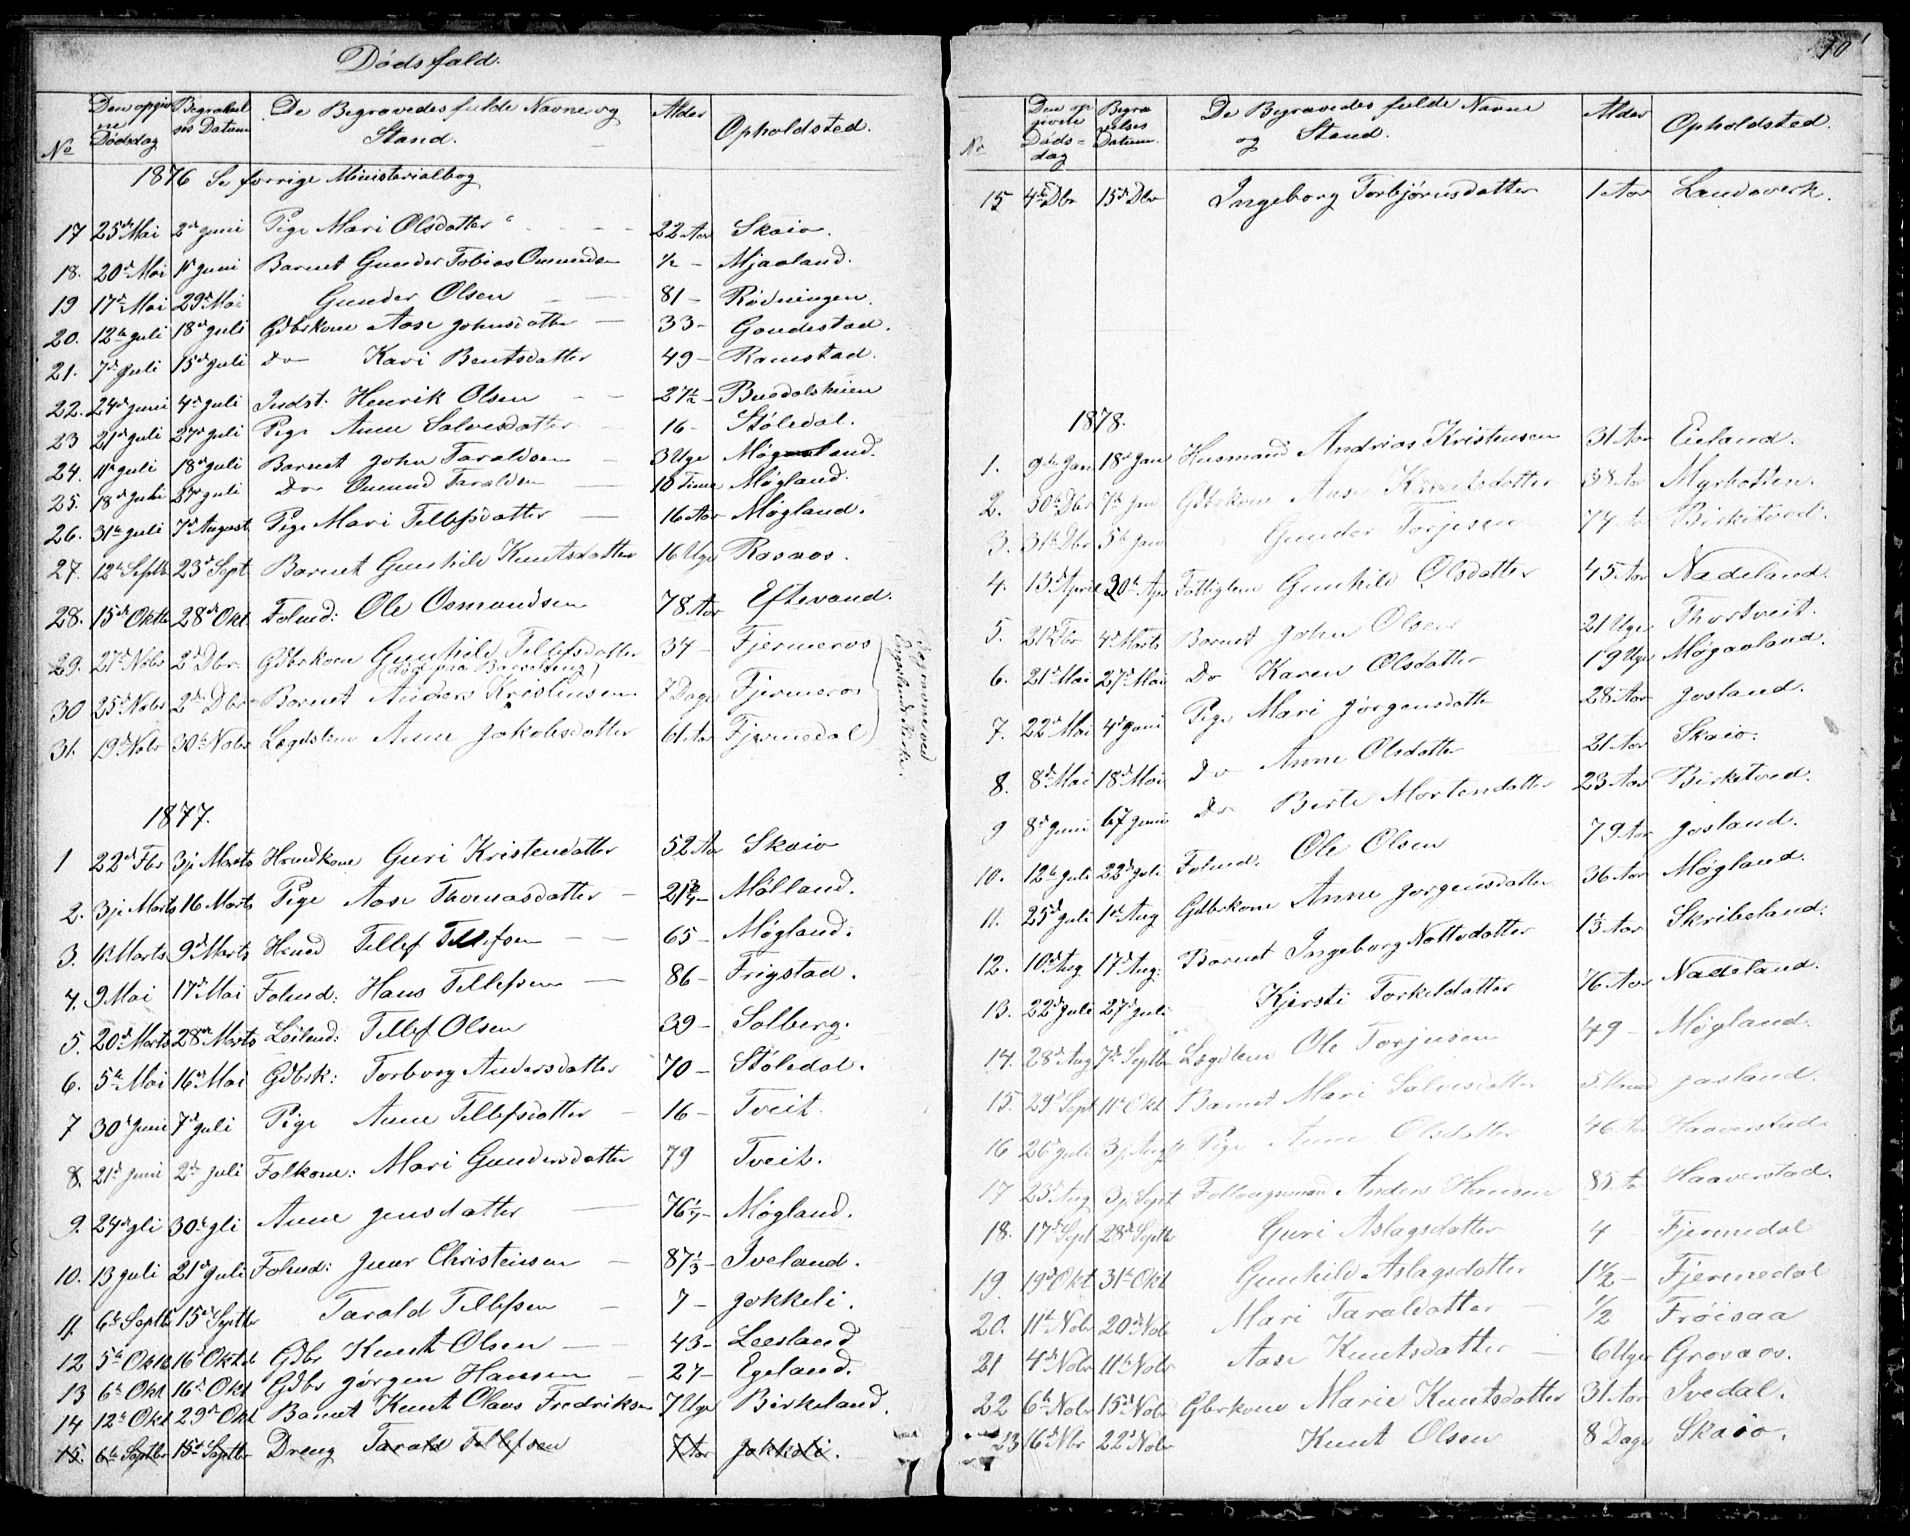 Dødsfald.
No Den opgivne Dødsdag Begravelses Datum De Begravedes fulde Navne og Stand. Alder Opholdsted.
1876 Se forrige Ministerialbog
17 25de Mai 2den Juni Pige Mari Olsdatter 22 Aar Skaio.
18. 20de Mai 1ste Juni Barnet Gunder Tobias Omundsen ½ - Mjaaland.
19 17de Mai 29de Mai Gunder Olsen 81 - Rødningen.
20. 12te Juli 18de Juli Gdbrkone Aase Johnsdatter 33 - Gaudestad.
21. 7de Juli 15de Juli Do Kari Bentsdatter 49 - Ramstad.
22. 24de Juni 4de Juli Indst. Henrik Olsen 27½ -
23 21de Juli 27de Juli Pige Anne Salvesdatter 16 - Støledal.
24. 11te Juli 18de Juli Barnet John Taraldsen 3 Uge Møgland.
25. 18de Juli 27de Juli Do Omund Taraldsen 10 Time Møgland.
26. 31te Juli 7de August Pige Mari Tellefsdatter 16 Aar Møgland.
27. 12te Septbr 23de Sept Barnet Gunhild Knutsdatter 16 Uge Rosaas.
28. 15de Oktbr 28de Okt. Folmd: Ole Osmundsen 78 Aar Eftevand.
29. 27de Novbr 2den Dbr. Gdbrkone Gunhild Tellefsdatter 34 - Fjermeros
(død paa Barselseng)
30 25de Novbr 2den Dbr Barnet Anders Kristensen 7 Dage Fjermeros
31. 19de Novbr 30te Novbr Lægdslem Anne Jakobsdatter 61 Aar Fjermedal
1877.
1 22de Fbr 3je Marts Hmdkone Guri Kristendatter 52 Aar Skaio
2. 3je Marts 16 Marts Pige Aase Thomasdatter - Mølland.
3. 1ste Marts 9de Marts Hmd Tellef Tellefsen 65 - Møgland.
4. 9 Mai 17de Mai Folmd: Hans Tellefsen 86 - Frigstad.
5. 20de Marts 28de Marts Leilend: Tellef Olsen 39 - Solberg.
6. 5te Mai 16de Mai Gdbrk: Torborg Andersdatter 70 - Støledal.
7 30te Juni 7de Juli Pige Anne Tellefsdatter 16 - Tveit.
8. 21de Juni 2den Juli Folkone: Mari Gundersdatter 79 Tveit.
9. 24de Jli 30te Jli Anne Jensdatter - Møgland.
10. 13 Juli 21de Juli Folmd: Christensen 87⅓ - Iveland.
11. 6te Septbr 15de Septbr Tarald Tellefsen 7 - Jokkeli.
12 5te Oktbr 16de Oktbr Gdbr Knut Olsen 43 - Leesland
13 6te Okt 16de Okt Gdbr Jørgen Hansen 27 - Egeland.
14 12te Okt 29de Okt Barnet Knut Olaus Fredriksen 7 Uge Birkeland.
15. 6te Septbr 15de Septbr Dreng Tarald Tellefsen 7 Aar Jokkeli.
70
No Den opgivte Dødsdag Begravelses Datum. De Begravedes fulde Navne og Stand. Alder Opholdsted.
15 4de Dbr 15de Dbr Ingeborg Torbjørnsdatter 1 Aar Landaverk.
1878.
1. 9de Jan 18de Jan Husmand Andrias Kristensen 31 Aar Eieland.
2. 30te Dbr 7de Jan Gdbrkone Aase Knutsdatter 38 Aar
3. 31te Dbr 5te Jan Gunder Torjesen 74 Aar Birketved.
4. 13de April 20de Apr Fattiglem Gunhild Olsdatter 45 Aar Nadeland.
5. 21de Fbr 4de Marts Barnet John Olsen 21 Uger Thortveit.
6. 21de Mai 27de Mai Do Karen Olsdatter 19 Uger Møgaaland.
7. 22de Mai 4de Juni Pige Mari Jørgensdatter 28 Aar Josland.
8. 8de Mai 18de Mai Do Anne Olsdatter 21 Aar Skaio.
9 8de Juni Juni Do Berte Mortendatter 23 Aar Birketved.
10. 12te Juli 22de Juli Folmd. Ole Olsen 79 Aar Josland.
11. 25de Juli 1ste Aug Gdbrkone Anne Jørgensdatter 36 Aar Møgland.
12. 10de Aug 17de Aug: Barnet Ingeborg Nottodatter Aar Skribeland.
13. 22de Juli 27de Juli Kjersti Torkeldatter 76 Aar Nadeland.
14. 28de Aug 7de Septbr Lægdlem Ole Torjusen 49 - Møgland.
15. 29de Sept 11te Okt Barnet Mari Salvesdatter Josland.
16 26de Juli 3je Aug Pige Anne Olsdatter 46 Aar Haaverstad
17 23de Aug 3je Sept Follaugsmand Anders Hansen 85 Aar Haaverstad.
18. 17de Sept 28de Septbr Guri Aslagsdatter 4 - Fjermedal
19. 19de Okt 31te Okt Gunhild Aslagsdatter 1½ - Fjermedal
20. 11te Novbr 20de Novbr Mari Taraldatter ½ Frøisaa
21 4de Novbr 11te Novbr Aase Knutsdatter 6 Uger Grosaas.
22 6te Novbr 15de Novbr Gbrkone Marie Knutsdatter 31 Aar Ivedal.
23 16de Nbr 22de Novbr Knut Olsen 8 Dage Skaio.